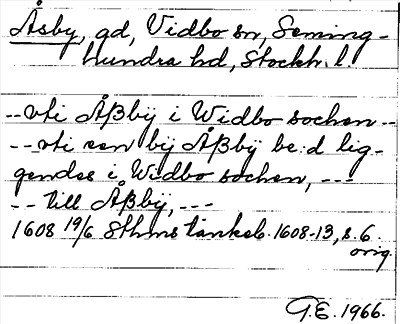 Åsby, gd, Vidbo sn, Seming-
hundra hd, Stockh. l.
--uti Åßbÿ i Widbo sochen--
--uti een bÿ Åßbÿ be:d lig-
gendes i Widbo sochen, ---
-- till Åßbÿ, ---
1608 19/6 Sthms tänkeb. 1608-13, s. 6.
orig.
G.E. 1966.